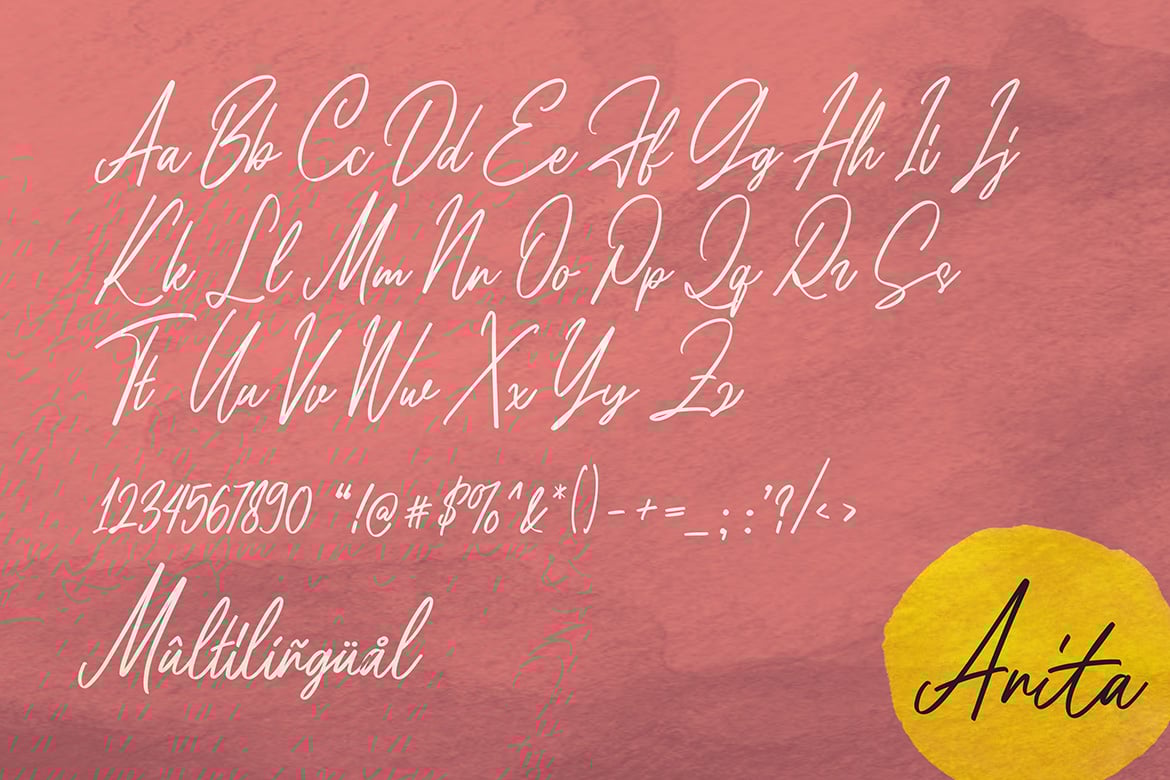 Aa Bb Cc Dd Ee Ff Gg Hh Ii Jj
Kk Ll Mm Nn Oo Pp Qq Rr Ss
Tt Uu Vv Ww Xx Yy Zz
1234567890 “!@#$%^&*()-+=_;:’?/<>
Mûltïlíñgüål
Anita